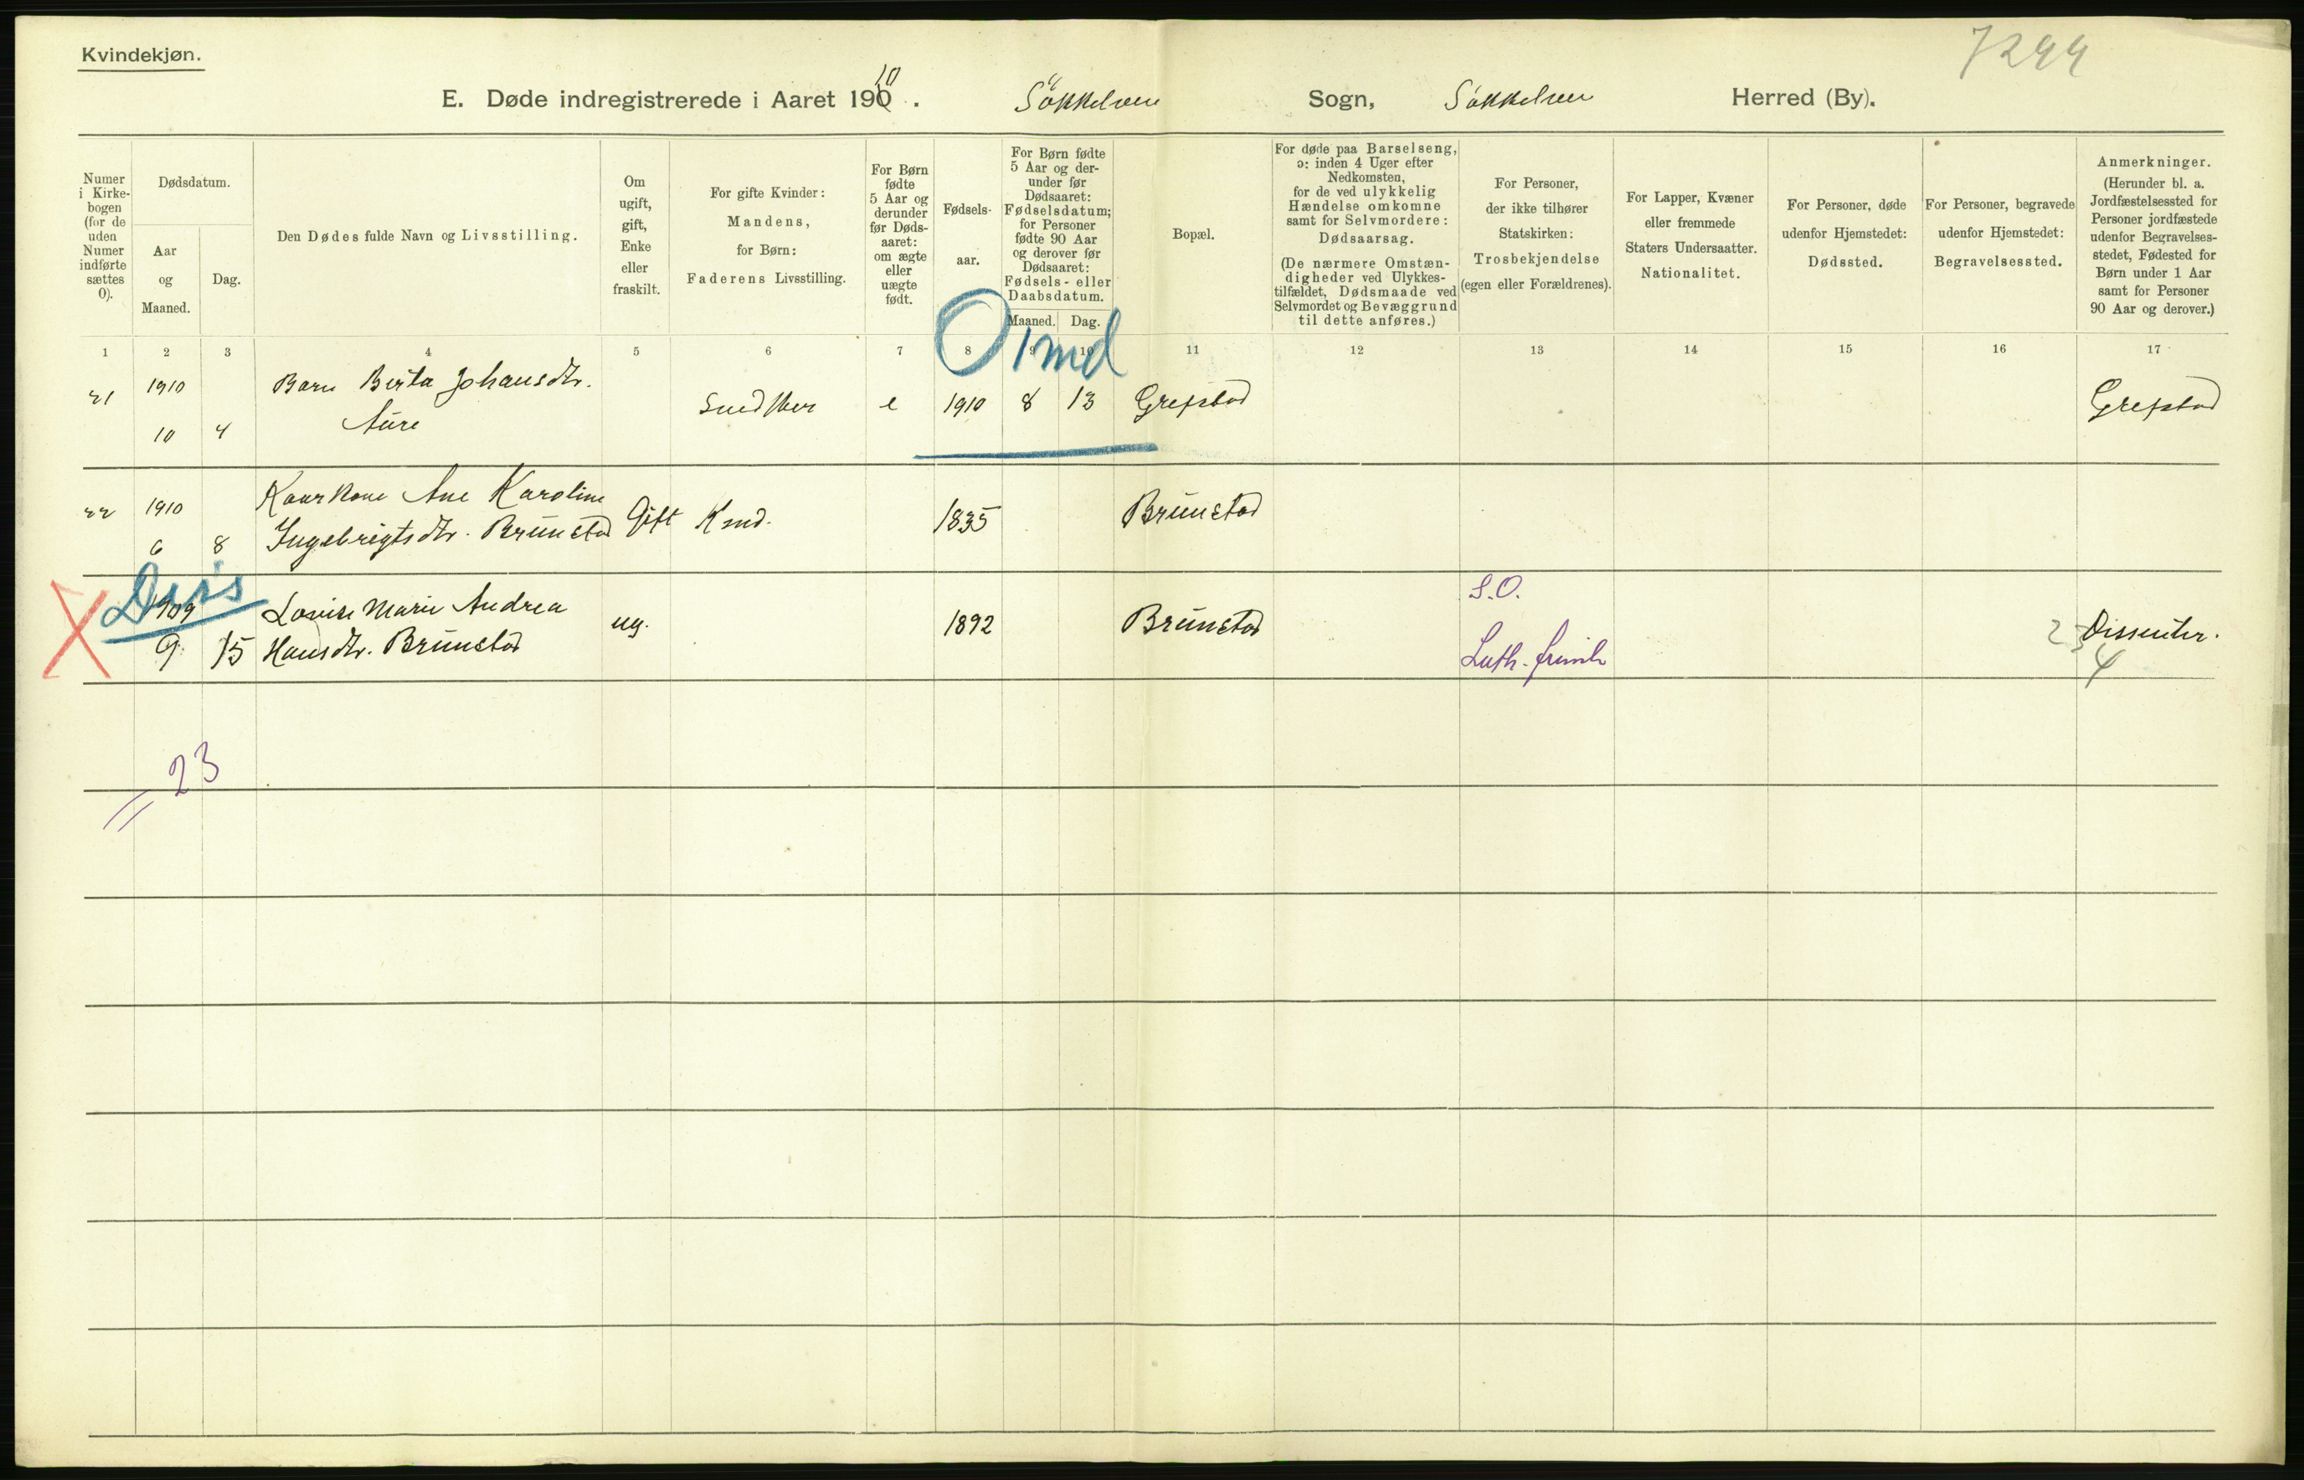 Kvindekjøn.
7244
E. Døde indregistrerede i Aaret 190 10. Søkkelven Sogn, Søkkelven Herred (By).
Numer i Kirkebogen (for de uden Numer indførte sættes 0).
Dødsdatum.
Aar og Maaned.
Dag.
Den Dødes fulde Navn og Livsstilling.
Om ugift, gift, Enke eller fraskilt.
For gifte Kvinder: Mandens, for Børn: Faderens Livsstilling.
For Børn fødte 5 Aar og derunder før Dødsaaret: om ægte eller uægte født.
Fødselsaar.
For Børn fødte 5 Aar og derunder før Dødsaaret: Fødselsdatum; for Personer fødte 90 Aar og derover før Dødsaaret: Fødsels- eller Daabsdatum.
Maaned. Dag.
Bopæl.
For døde paa Barselseng, ɔ: inden 4 Uger efter Nedkomsten, for de ved ulykkelig Hændelse omkomne samt for Selvmordere: Dødsaarsag.
(De nærmere Omstændigheder ved Ulykkestilfældet, Dødsmaade ved Selvmordet og Bevæggrund til dette anføres.)
For Personer, der ikke tilhører Statskirken: Trosbekjendelse (egen eller Forældrenes).
For Lapper, Kvæner eller fremmede Staters Undersaatter. Nationalitet.
For Personer, døde udenfor Hjemstedet: Dødssted.
For Personer, begravede udenfor Hjemstedet: Begravelsessted.
Anmerkninger.
(Herunder bl. a. Jordfæstelsessted for Personer jordfæstede udenfor Begravelsesstedet, Fødested for Børn under 1 Aar samt for Personer 90 Aar og derover.)
1 2 3 4 5 6 7 8 9 10 11 12 13 14 15 16 17
0 1 md
21 1910 10 4 Barn Berta Johansdtr. Aure e 1910 8 13 Grepstad Grepstad
22 1910 6 8 Kaarkone Ane Karoline Ingebrigtsdtr. Brunstad Gift Kmd. 1835 Brunstad
X Diss
1909 9 15 Lovise Marie Andrea Hansdtr. Brunstad ug. 1892 Brunstad S.O. Luth. frimh 23 Dissenter. 4
23